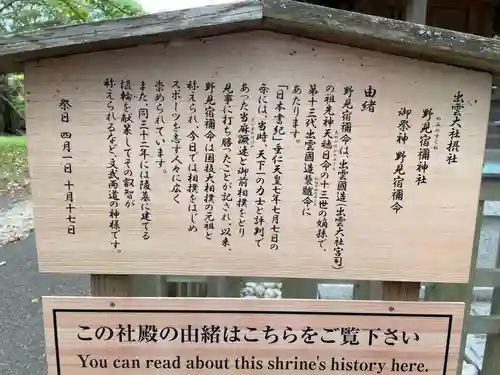 出雲大社摂社
野見宿禰神社
のみのすくねのかみのやしろ
御祭神 野見宿禰命
由緒
野見宿禰命は、出雲國造(出雲大社宮司)
の祖先神天穂日命の十三世の嫡孫で、
第十三代出雲國造襲髄命に
あたります。
「日本書紀」垂仁天皇七年七月七日の
条には、当時、天下一の力士と評判で
あった当麻蹶速と御前相撲をとり
見事に打ち勝ったことが記され、以来、
野見宿禰命は国技・相撲の元祖と
称えられ、今日では相撲をはじめ
スポーツを志す人々に広く
崇められています。
また、同三十二年には陵墓に建てる
埴輪を献案してその叡智が
称えられるなど、文武両道の神様です。
祭日 四月一日 十月十七日
この社殿の由緒はこちらをご覧下さい
You can read about this shrine's history here.